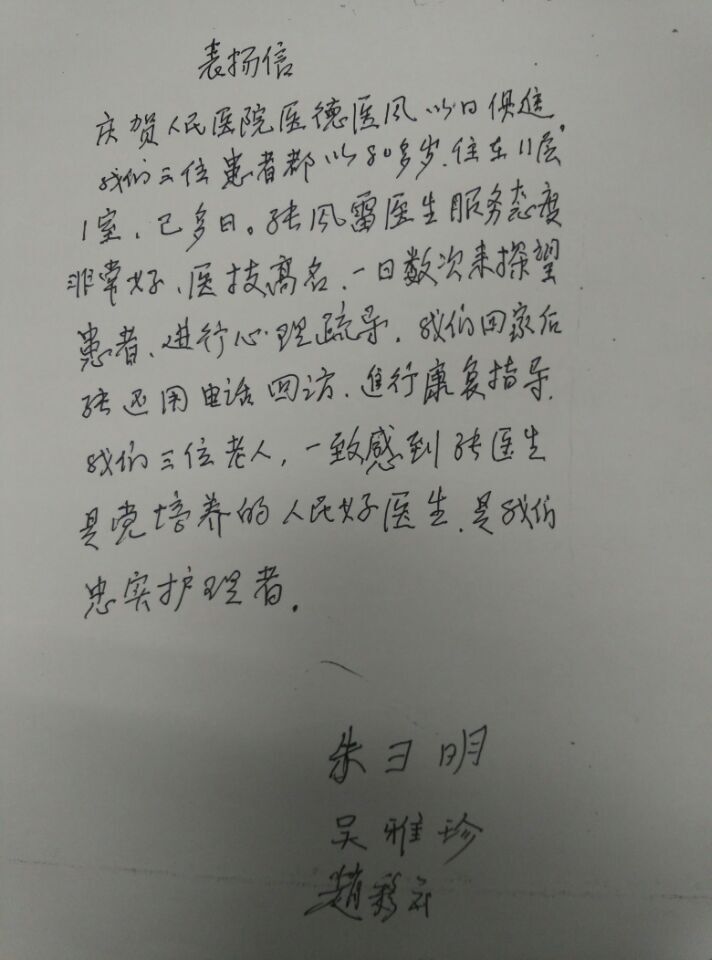 表扬信
庆贺人民医院医德医风以日俱进.
我们三位患者都以80多岁.住在11层
1室,已多日。张风雷医生服务态度
非常好、医技高名.一日数次来探望
患者、进行心理疏导.我们回家后
张还用电话回访.進行康复指导.
我们三位老人,一致感到张医生
是党培养的人民好医生.是我们
忠实护理者.
朱曰明
吴雅珍
趙